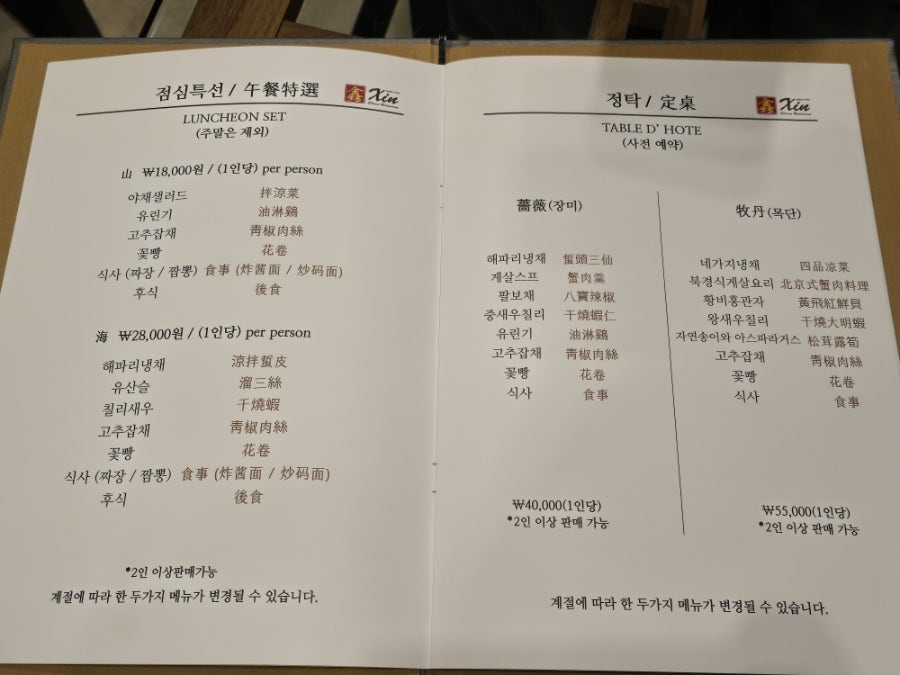 점심특선 / 午餐特選
鑫 Xin
LUNCHEON SET
(주말은 제외)
山 ₩18,000원 / (1인당) per person
야채샐러드 拌涼菜
유린기 油淋鷄
고추잡채 靑椒肉絲
꽃빵 花卷
식사 (짜장 / 짬뽕) 食事 (炸酱面 / 炒码面)
후식 後食
海 ₩28,000원 / (1인당) per person
해파리냉채 涼拌蜇皮
유산슬 溜三絲
칠리새우 干燒蝦
고추잡채 靑椒肉絲
꽃빵 花卷
식사 (짜장 / 짬뽕) 食事 (炸酱面 / 炒码面)
후식 後食
*2인 이상판매가능
계절에 따라 한 두가지 메뉴가 변경될 수 있습니다.
정탁 / 定桌
鑫 Xin
TABLE D' HOTE
(사전 예약)
薔薇(장미)
해파리냉채 蜇頭三仙
게살스프 蟹肉羹
팔보채 八寶辣椒
중새우칠리 干燒蝦仁
유린기 油淋鷄
고추잡채 靑椒肉絲
꽃빵 花卷
식사 食事
₩40,000(1인당)
*2인 이상 판매 가능
牧丹(목단)
네가지냉채 四品凉菜
북경식게살요리 北京式蟹肉料理
황비홍관자 黃飛紅鮮貝
왕새우칠리 干燒大明蝦
자연송이와 아스파라거스 松茸露筍
고추잡채 靑椒肉絲
꽃빵 花卷
식사 食事
₩55,000(1인당)
*2인 이상 판매 가능
계절에 따라 한 두가지 메뉴가 변경될 수 있습니다.